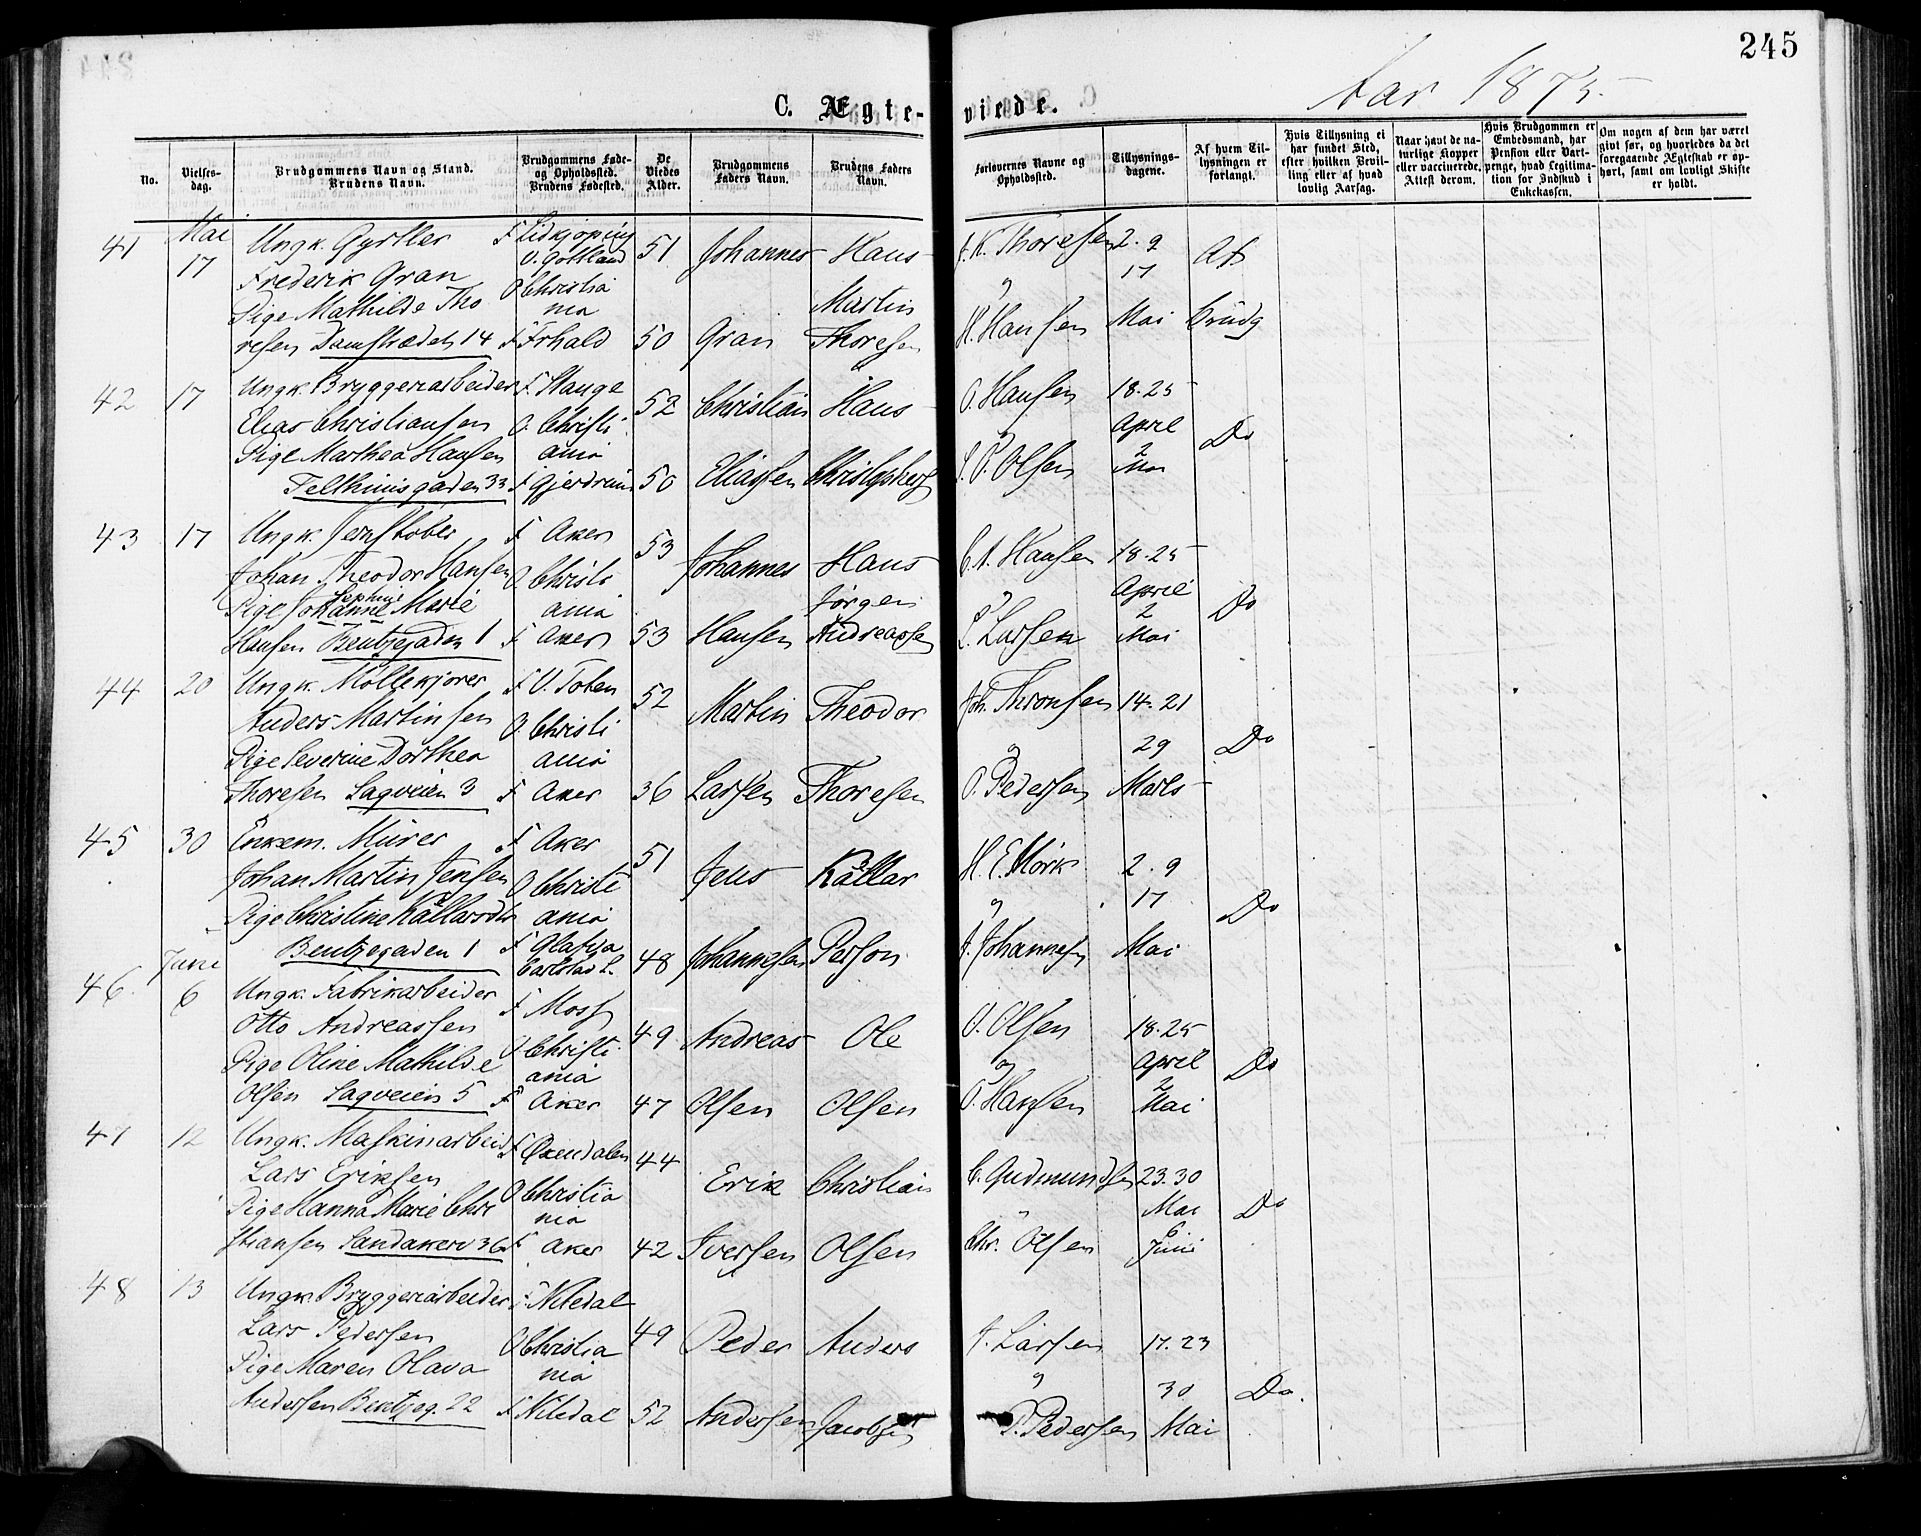 245
Aar 1875.
C. Ægte-
viede.
No.
Vielses-
dag.
Brudgommens Navn og Stand.
Brudens Navn.
Brudgommens Føde-
og Opholdssted.
Brudens Fødested.
De
Viedes
Alder.
Brudgommens
Faders Navn.
Brudens Faders
Navn.
Forlovernes Navne og
Opholdssted.
Tillysnings-
dagene.
Af hvem Til-
lysningen er
forlangt.
Hvis Tillysning ei
har fundet Sted,
efter hvilken Bevil-
ling eller af hvad
lovlig Aarsag.
Naar havt de na-
turlige Kopper
eller vaccinerede.
Attest derom.
Hvis Brudgommen er
Embedsmand, har
Pension eller Vart-
penge, hvad Legitima-
tion for Indskud i
Enkekassen.
Om nogen af dem har været
givt før, og hvorledes da det
foregaaende Ægteskab er op-
hørt, samt om lovligt Skifte
er holdt.
41 Mai Ungk. Gyrtler F Lidkjøping 51 Johannes Hans J. K. Thoresen 2. 9
17 Frederik Gran V. Gotland og 17 Af
Pige Mathilde Tho O Christia Martin
resen Damstrædet 14 nia
F Frhald 50 Gran Thoresen H. Hansen Mai brudg
42 17 Ungk. Bryggeriarbeider F. Stange 52 Christian Hans O. Hansen 18. 25
Elias Christiansen O. Christi April
Pige Marthea Hansen ania og 2 Do
Telthuusgaden 33 F Gjerdrum 50 Eliassen Christophers S. P. Olsen Mai
43 17 Ungk. Jernstøber F Aker 53 Johannes Hans C. A. Hansen 18. 25
Johan Theodor Hansen O Christi April
Sephine
Pige Johanne Marie ania Jørgen og 2 Do
Hansen Bentzegaden 1 F Aker 53 Hansen Andreassen L. Larsen Mai
44 20 Ungk. Møllekjører F V. Toten 52 Martin Theodor Joh. Thronsen 14. 21
Anders Martinsen O. Christi
Pige Severine Dorthea ania og 29 Do
Thoresen Sagveien 3 F Aker 36 Larsen Thoresen O. Pedersen Marts
45 30 Enkem. Murer F Aker 51 Jens Kállar H. E. Mörk 2. 9
Johan Martin Jensen O Christi
Pige Christine Kállarsdtr ania og 17 Do
Bentzegaden 1 F Glafva
Carlstad L. 48 Johannesen Person J. Johannesen Mai
46 Juni Ungk. Fabrikarbeider F Moss 49 Andreas Ole O. Olsen 18. 25
6 Otto Andreassen O Christi April
Pige Oline Mathilde ania og 2 Do
Olsen Sagveien 5 F Aker 47 Olsen Olsen O. Hansen Mai
47 12 Ungk. Maskinarbeid F Øxendalen 44 Erik Christian C. Gudmundsen 23. 30
Lars Eriksen O Christia Mai
Pige Hanna Marie Chri nia 6 Do
stiansen Sandakerv 36 F Aker 42 Iversen Olsen Chr. Olsen Juni
48 13 Ungk. Bryggeriarbeider F Nitedal 49 Peder Anders J. Larsen 17. 23
Lars Pedersen O Christia
Pige Maren Olava nia og 30 Do.
Andersen Bentzeg. 22 F Nitedal 52 Andersen Jacobsen P. Pedersen Mai